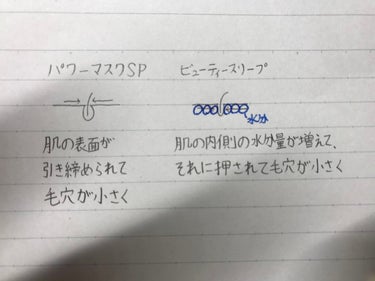 パワーマスクSP
ビューティースリープ
水分
肌の表面が
引き締められて
毛穴が小さく
肌の内側の水分量が増えて、
それに押されて毛穴が小さく